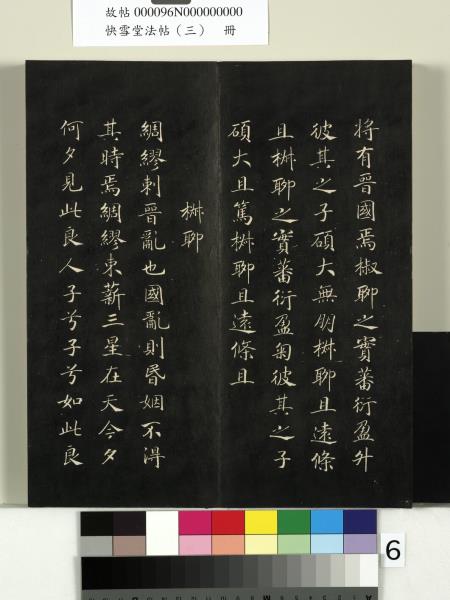 故帖 000096N000000000
快雪堂法帖（三） 冊
將有晉國焉椒聊之實蕃衍盈升
彼其之子碩大無朋椒聊且遠條
且椒聊之實蕃衍盈匊彼其之子
碩大且篤椒聊且遠條且
椒聊
綢繆刺晉亂也國亂則昏姻不得
其時焉綢繆束薪三星在天今夕
何夕見此良人子兮子兮如此良
6